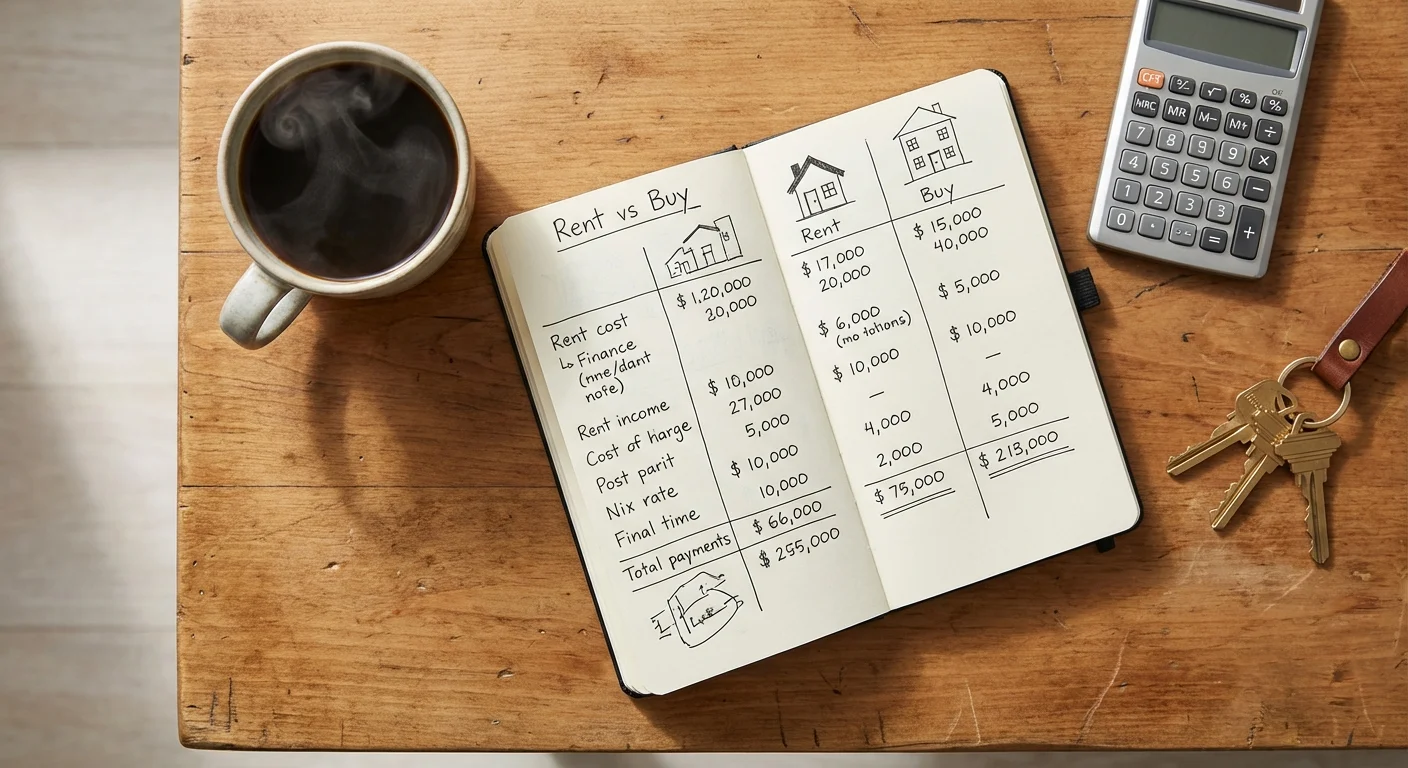 Rent vs Buy
$ 1,20,000
Rent cost 20,000
↳ Finance
(nne/dant
nofe)
Rent income $ 10,000
Cost of harge 27,000
Post parit 5,000
Nix rate $ 10,000
Final time 10,000
Total payments $ 66,000
$ 255,000
Rent Buy
$ 17,000 $ 15,000
20,000 40,000
$ 6,000 $ 5,000
(mo tations)
$ 10,000 $ 10,000
— —
4,000 4,000
2,000 5,000
$ 75,000 $ 213,000
MRC MR M– M+ ÷
7 8 9 9 ×
4 5 5 6 –
1 2 3 3 +
0 · =
√ % %